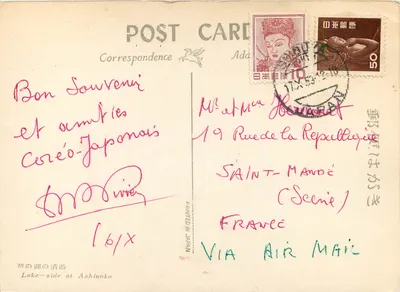 POST CARD
Correspondence
Bon Souvenir
et amitiés
Coréo-Japonais
16/X
10
日本郵便
50
日本郵便
17.X.5
JAPAN
M. et Mme
19 Rue de la République
SAINT-MANDÉ
(Seine)
FRANCE
VIA AIR MAIL
郵便はがき
Lake-side at Ashinoko